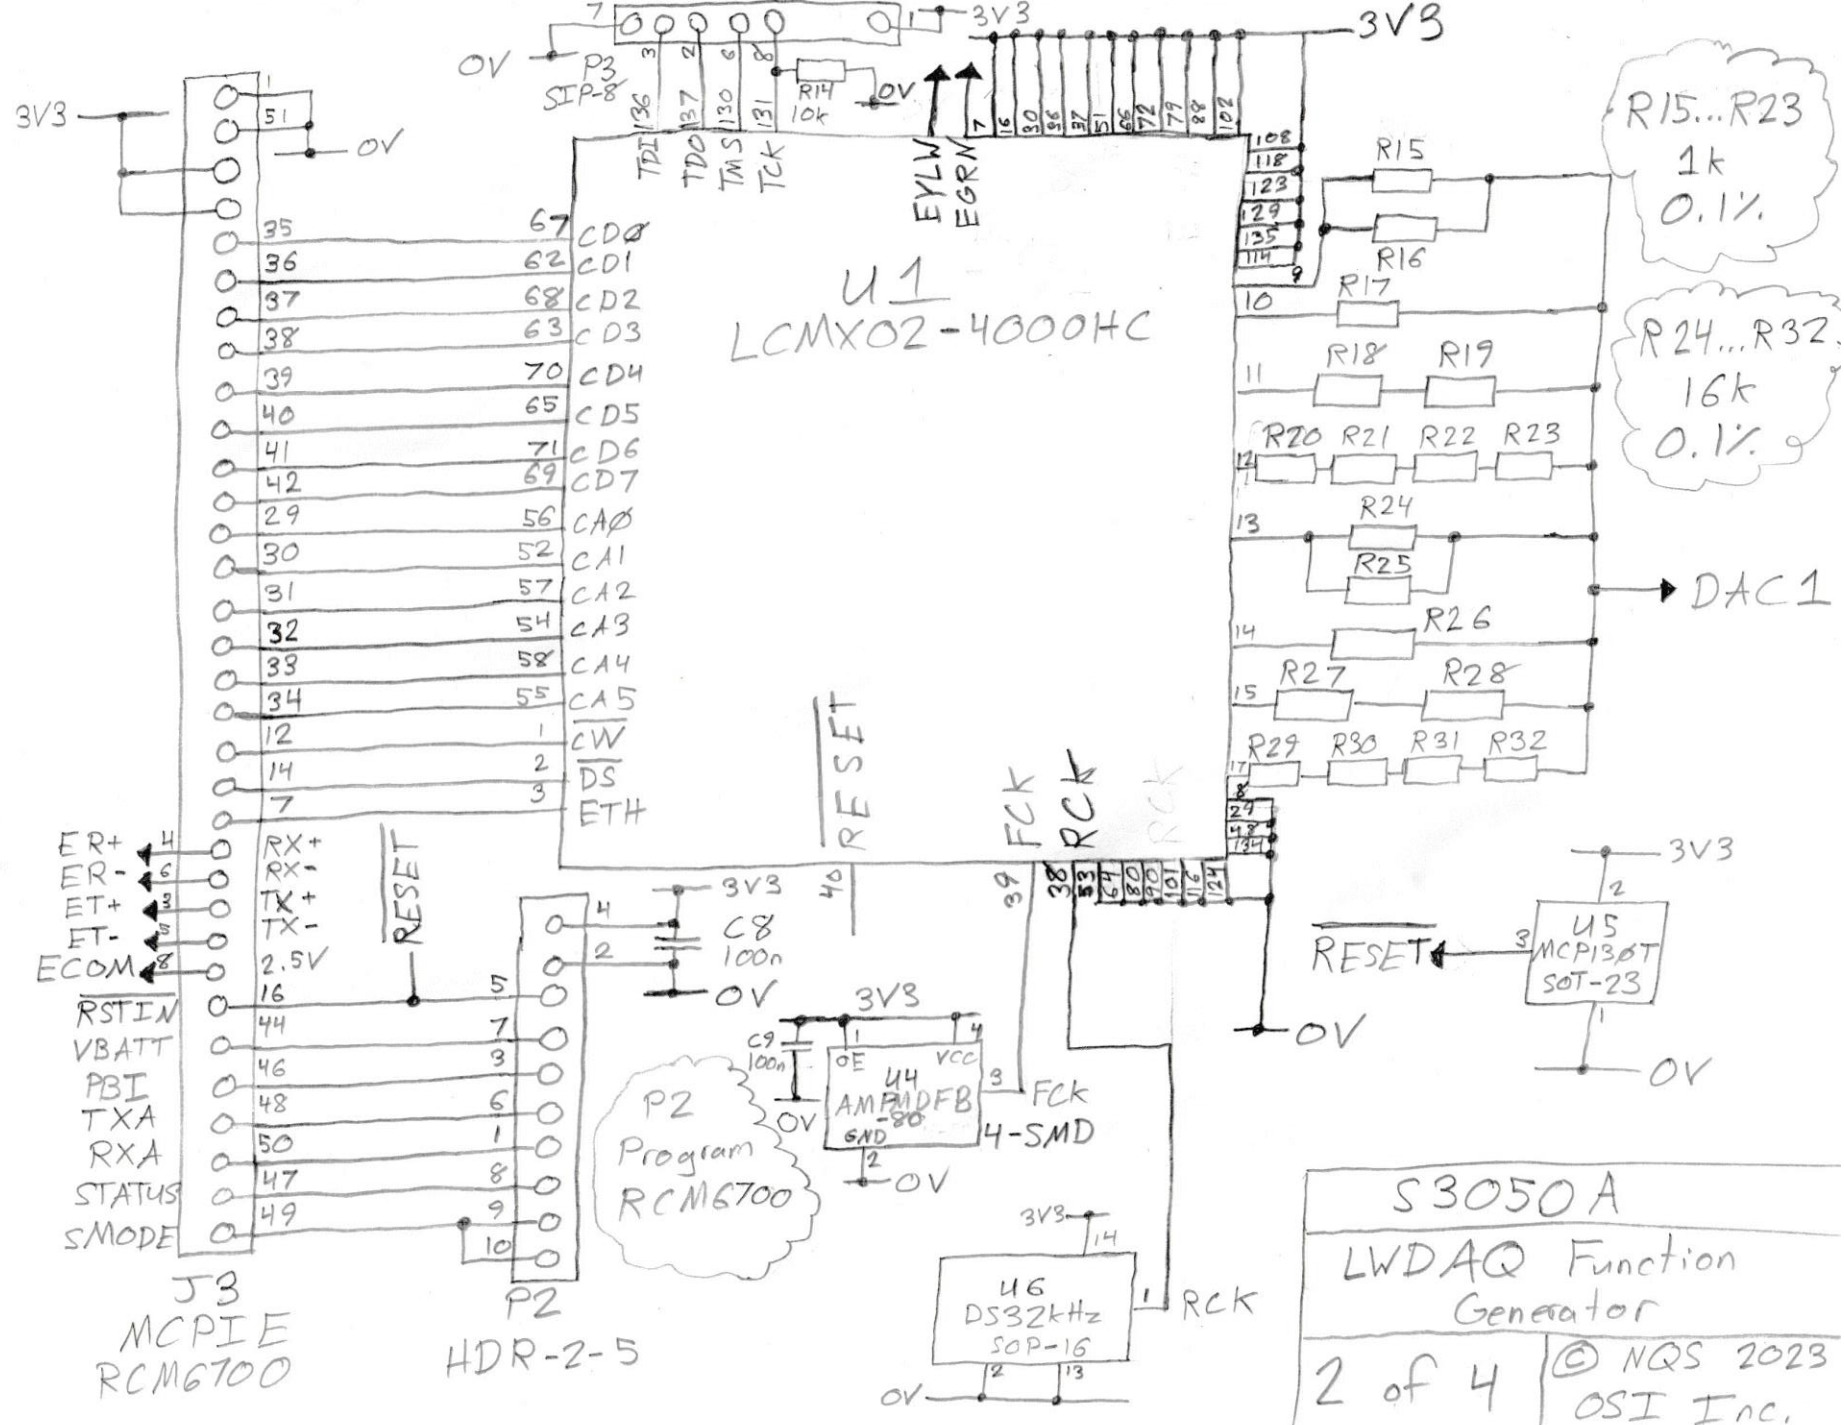 7
1
3V3
3V3
0V
P3
SIP-8
3
2
6
8
R14
10k
0V
136
137
130
131
TDI
TDO
TMS
TCK
EYLW
EGRN
7
16
30
37
51
66
72
79
88
102
108
118
123
129
135
114
3V3
1
51
0V
35
67
CDØ
36
62
CD1
37
68
CD2
38
63
CD3
39
70
CD4
40
65
CD5
41
71
CD6
42
69
CD7
29
56
CAØ
30
52
CA1
31
57
CA2
32
54
CA3
33
58
CA4
34
55
CA5
12
1
CW
14
2
DS
7
3
ETH
U1
LCMXO2-4000HC
RESET
FCK
RCK
RCK
40
39
38
53
64
80
90
101
116
124
9
R15
R16
10
R17
11
R18
R19
12
R20
R21
R22
R23
13
R24
R25
14
R26
15
R27
R28
17
R29
R30
R31
R32
8
29
48
134
0V
DAC1
R15...R23
1k
0.1%
R24...R32
16k
0.1%
ER+
4
RX+
ER-
6
RX-
ET+
3
TX+
ET-
5
TX-
ECOM
8
2.5V
RSTIN
16
5
VBATT
44
7
PBI
46
3
TXA
48
6
RXA
50
1
STATUS
47
8
SMODE
49
9
10
RESET
J3
MCPIE
RCM6700
4
2
P2
HDR-2-5
3V3
C8
100n
0V
P2
Program
RCM6700
3V3
C9
100n
0V
1
OE
4
VCC
U4
AMPMDFB
-80
GND
2
0V
3
FCK
4-SMD
3V3
14
U6
DS32kHz
SOP-16
1
RCK
2
13
0V
3V3
2
U5
MCP130T
SOT-23
3
RESET
1
0V
S3050A
LWDAQ Function
Generator
2 of 4
© NQS 2023
OSI Inc.